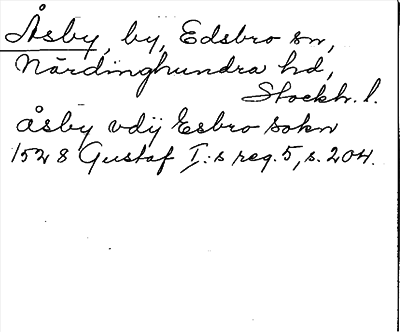 Åsby, by, Edsbro sn,
Närdinghundra hd,
Stockh. l.
åsby vdij Esbro sokn
1528 Gustaf I:s reg. 5, s. 204.